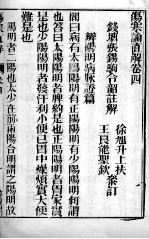 傷寒論直解卷四
錢塘張錫駒令韶註解
徐旭升上扶
王良能聖欽 參訂
辨陽明病脈證篇
問曰病有太陽陽明有正陽陽明有少陽陽明何謂
也答曰太陽陽明者脾約是也正陽陽明者胃家實
是也少陽陽明者發汗利小便已胃中燥煩實大便
難是也
陽明者二陽也太少在前兩陽合明謂之陽明故